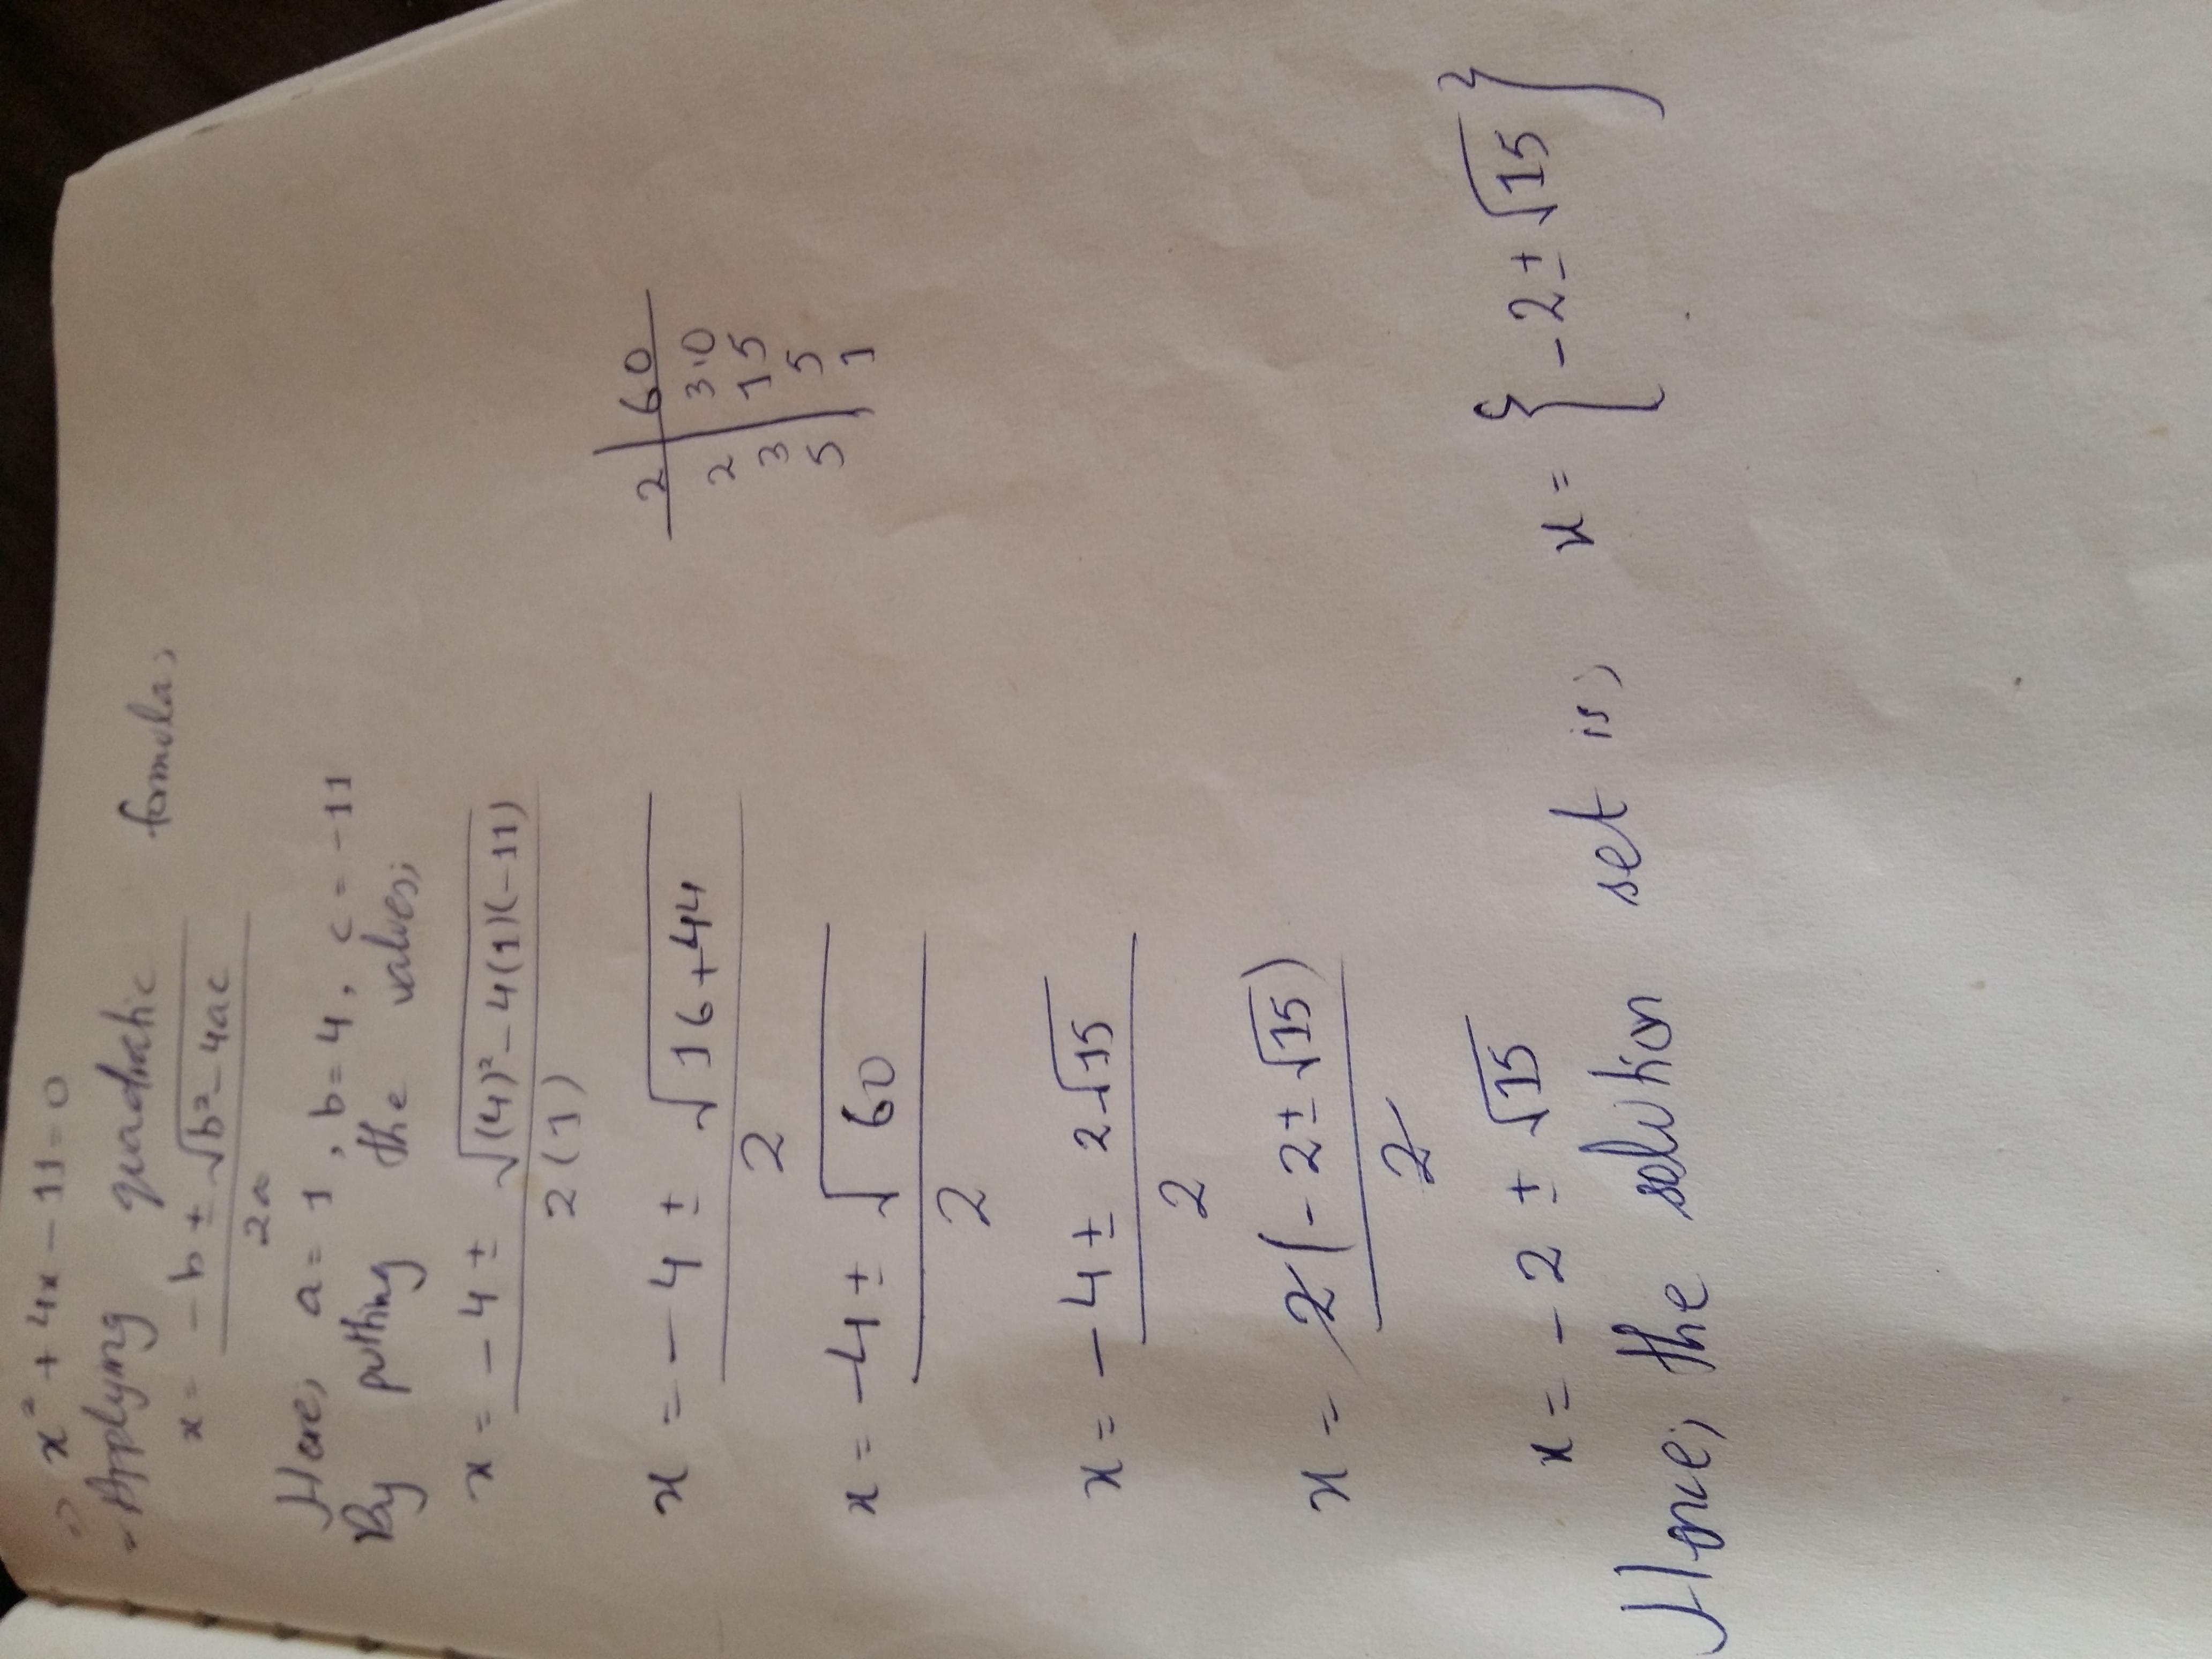 ⇒ x² + 4x - 11 = 0
= Applying quadratic formula,
x = -b ± √b² - 4ac
2a
Here, a = 1, b = 4, c = -11
By putting the values;
x = -4 ± √(4)² - 4(1)(-11)
2(1)
x = -4 ± √16 + 44
2
2 | 60
2 | 30
3 | 15
5 | 5
1
x = -4 ± √60
2
x = -4 ± 2√15
2
x = 2(-2 ± √15)
2
x = -2 ± √15
Hence, the solution set is, x = {-2 ± √15}